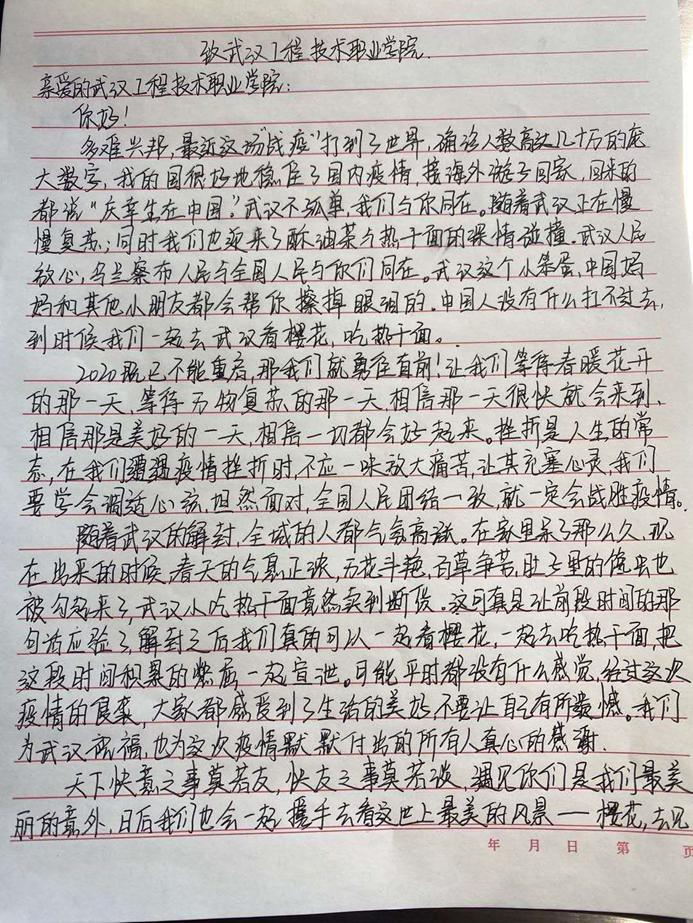 致武汉工程技术职业学院.
亲爱的武汉工程技术职业学院:
你好!
多难兴邦,最近这场“战疫”打到了世界,确诊人数高达几十万的庞
大数字,我的国很好地稳住了国内疫情,接海外游子回家,回来的
都说“庆幸生在中国”.武汉不孤单,我们与你同在。随着武汉正在慢
慢复苏;同时我们也迎来了酥油茶与热干面的深情碰撞.武汉人民
放心,乌兰察布人民与全国人民与你们同在。武汉这个小笨蛋,中国妈
妈和其他小朋友都会帮你擦掉眼泪的.中国人没有什么扛不过去,
到时候我们一起去武汉看樱花,吃热干面。
2020既已不能重启,那我们就勇往直前!让我们等待春暖花开
的那一天,等待万物复苏的那一天,相信那一天很快就会来到,
相信那是美好的一天,相信一切都会好起来。挫折是人生的常
态,在我们遭遇疫情挫折时,不应一味放大痛苦,让其充塞心灵,我们
要学会调适心态,坦然面对,全国人民团结一致,就一定会战胜疫情。
随着武汉的解封,全城的人都气氛高涨。在家里呆了那么久,现
在出来的时候,春天的气息正浓,百花斗艳,百草争芳,肚子里的馋虫也
被勾起来了,武汉小吃热干面竟然卖到断货。这可真是让前段时间的那
句话应验了,解封之后我们真的可以一起看樱花,一起去吃热干面,把
这段时间积累的憋屈一起宣泄。可能平时都没有什么感觉,经过这次
疫情的侵袭,大家都感受到了生活的美好,不要让自己有所遗憾。我们
为武汉祝福,也为这次疫情默默付出的所有人真心的感谢.
天下快意之事莫若友,快友之事莫若谈,遇见你们是我们最美
丽的意外,日后我们也会一起携手去看这世上最美的风景——樱花,去见
年 月 日 第 页